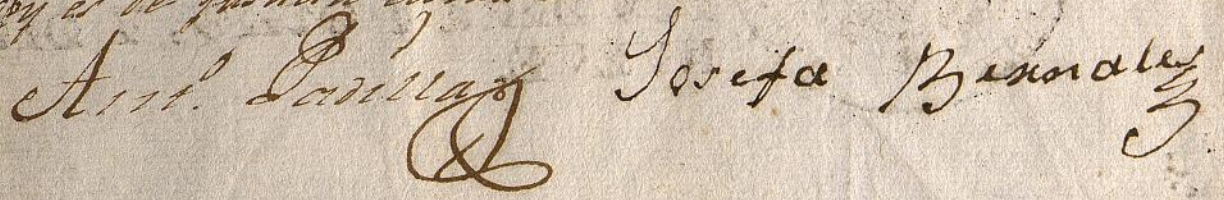 y es de
Ant.º Padilla Josefa Bernales